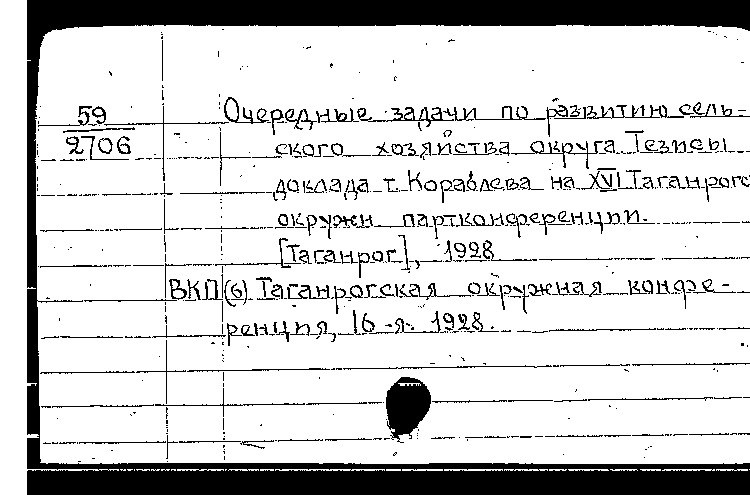 59
2706
Очередные задачи по развитию сель-
ского хозяйства округа Тезисы
доклада т. Кораблева на XVI Таганрогс
окружн партконференции.
[Таганрог], 1928
ВКП(б) Таганрогская окружная конфе-
ренция, 16-я. 1928.